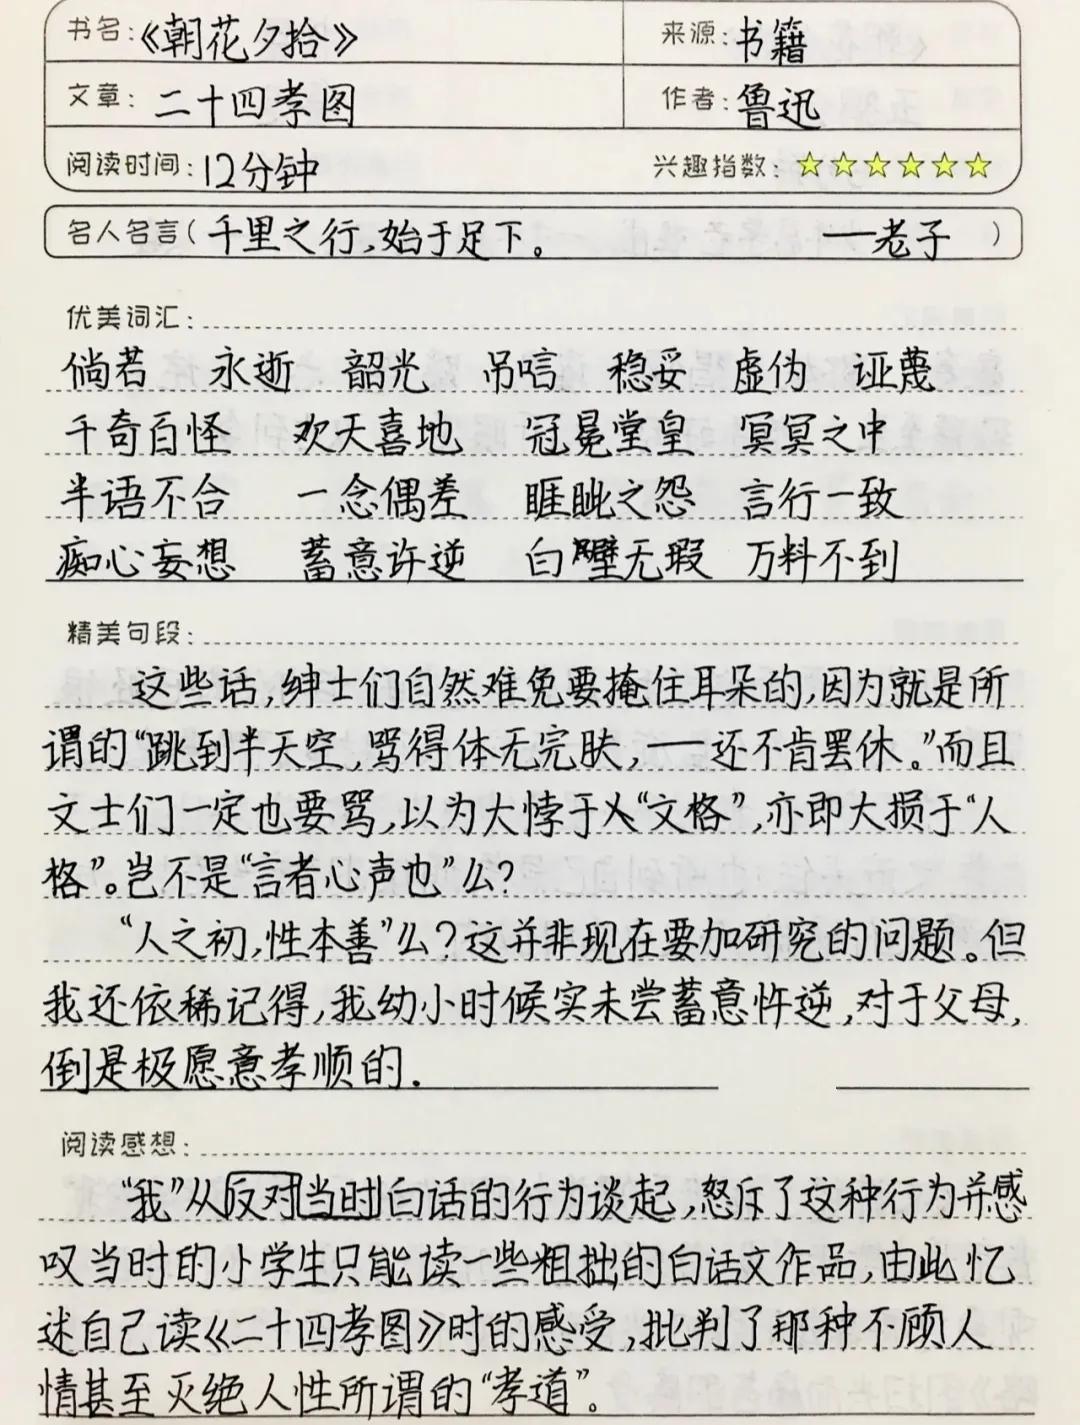 书名:《朝花夕拾》 来源:书籍
文章:二十四孝图 作者:鲁迅
阅读时间:12分钟 兴趣指数:☆☆☆☆☆☆
名人名言(千里之行,始于足下。 ——老子)
优美词汇:
倘若 永逝 韶光 吊唁 稳妥 虚伪 诬蔑
千奇百怪 欢天喜地 冠冕堂皇 冥冥之中
半语不合 一念偶差 睚眦之怨 言行一致
痴心妄想 蓄意许逆 白璧无瑕 万料不到
精美句段:
这些话,绅士们自然难免要掩住耳朵的,因为就是所
谓的“跳到半天空,骂得体无完肤,——还不肯罢休。”而且
文士们一定也要骂,以为大悖于“文格”,亦即大损于“人
格”。岂不是“言者心声也”么?
“人之初,性本善”么?这并非现在要加研究的问题。但
我还依稀记得,我幼小时候实未尝蓄意忤逆,对于父母,
倒是极愿意孝顺的.
阅读感想:
“我”从反对当时白话的行为谈起,怒斥了这种行为并感
叹当时的小学生只能读一些粗拙的白话文作品,由此忆
述自己读《二十四孝图》时的感受,批判了那种不顾人
情甚至灭绝人性所谓的“孝道”。